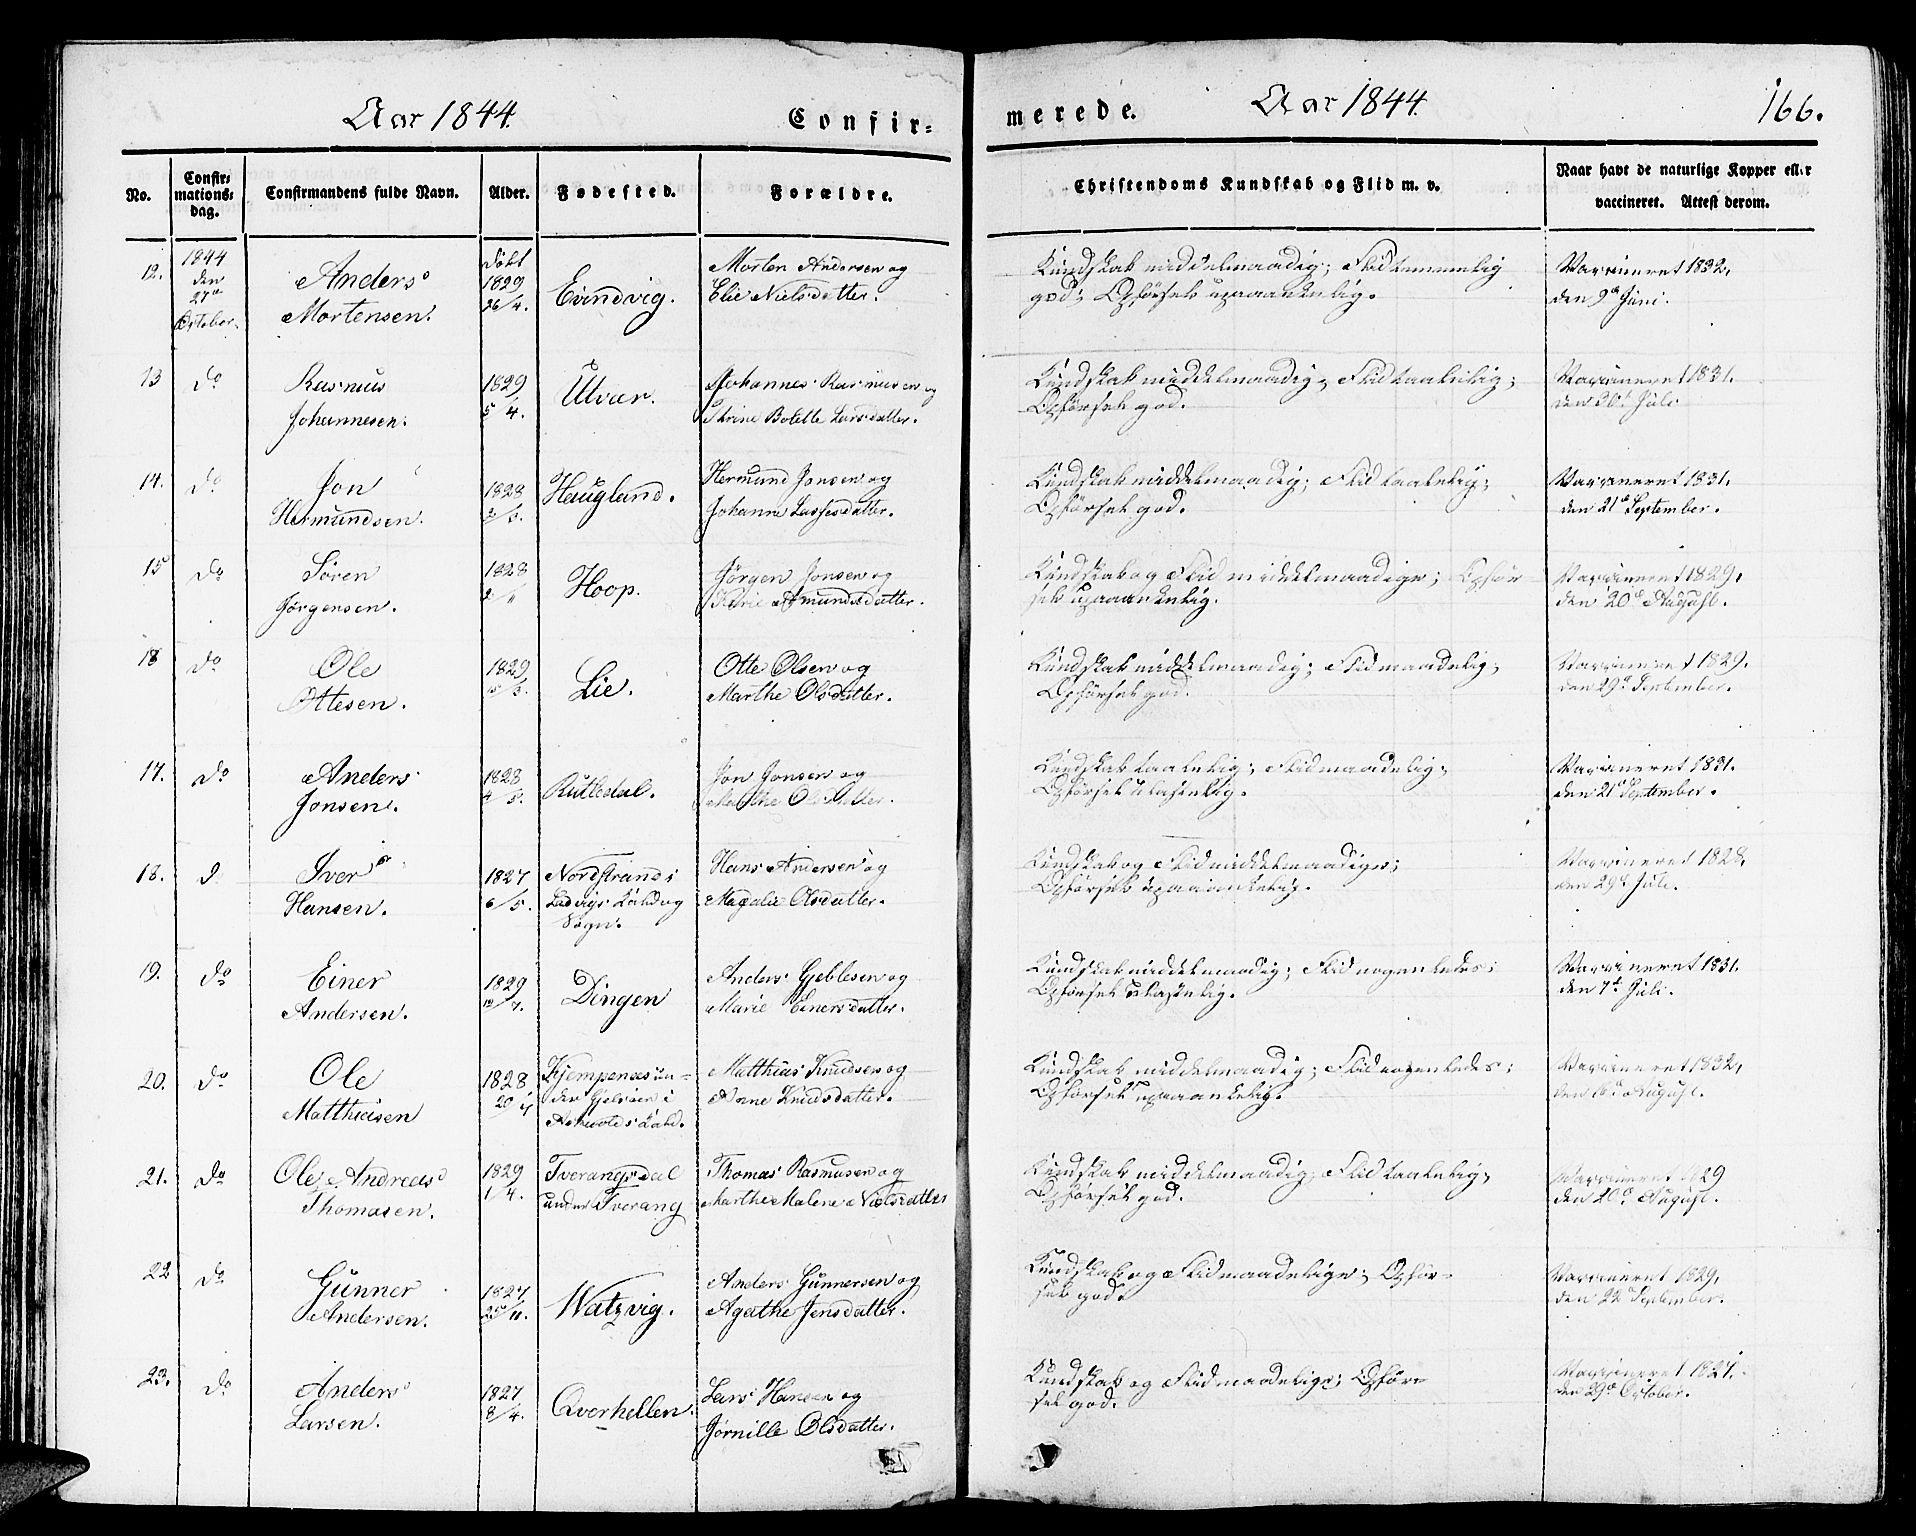 Aar 1844. Confir-
merede. Aar 1844. 166.
No. Confir-mations-dag. Confirmandens fulde Navn. Alder. Fødested. Forældre. Christendoms Kundskab og Flid m. v. Naar havt de naturlige Kopper eller vaccineret. Attest derom.
12. 1844 den 27de October. Anders Mortensen. Døbt 1829 26/4. Evindvig. Morten Andersen og Elie Nielsdatter. Kundskab middelmaadig; Flid temmelig god; Opførsel upaaankelig. Vaccineret 1832, den 9de Juni.
13 do Rasmus Johannesen. 1829 5/4. Utvær. Johannes Rasmusen og Thrine Bolette Larsdatter. Kundskab middelmaadig, Flid taalelig; Opførsel god. Vaccineret 1831. den 30te Juli.
14. do Jon Hermundsen. 1828 2/3. Haugland. Hermund Jonsen og Johanne Lassesdatter. Kundskab middelmaadig; Flid taalelig; Opførsel god. Vaccineret 1831. den 21de September.
15 do Søren Jørgensen. 1828 Hoop. Jørgen Jonsen og Amundsdatter. Kundskab og Flid middelmaadige; Opførsel upaaankelig. Vaccineret 1829, den 20de August.
do Ole Ottesen. 1829 Lie. Otte Olsen og Marthe Olsdatter. Kundskab middelmaadig; Flid maadelig; Opførsel god. Vaccineret 1829. den 29de September.
17. do Anders Jonsen. 1828 4/3. Rutledal. Jon Jonsen og Marthe Olsdatter. Kundskab taalelig; Flid maadelig; Opførsel ulastelig. Vaccineret 1831. den 21de September.
18. d Iver Hansen. 1827 6/5. Nordstrand i Ladvigs Sogn. Hans Andersen og Magalie Olsdatter. Kundskab og Flid middelmaadige; Opførsel upaaankelig. Vaccineret 1828, den 29de Juli.
19. do Einer Andersen. 1829 Dingen Anders Geblesen og Marie Einersdatter. Kundskab middelmaadig; Flid nogenledes; Opførsel ulastelig. Vaccineret 1831. den 7de Juli.
20. do Ole Matthiasen 1828 Kjempenes un-der i Askvolds Matthias Knudsen og Anne Knudsdatter. Kundskab middelmaadig; Flid nogenledes; Opførsel upaaankelig. Vaccineret 1832, den 16de August.
21. do Ole Andreas Thomasen. 1829 1/4. Tverangsdal under Tverang Thomas Rasmusen og Marthe Malene Nielsdatter Kundskab middelmaadig, Flid taalelig, Opførsel god. Vaccineret 1829 den 20de August.
22 do Gunner Andersen. 1827 25/11. Watzvig. Anders Gunnersen og Agathe Jensdatter. Kundskab og Flid maadelige; Opfør-sel god. Vaccineret 1829, den 22de September.
23. do Anders Larsen. 1827 8/4. Qverhellen. Lars Hansen og Jørnille Olsdatter. Kundskab og Flid maadelige; Opfør-sel god. Vaccineret 1827. den 29de October.